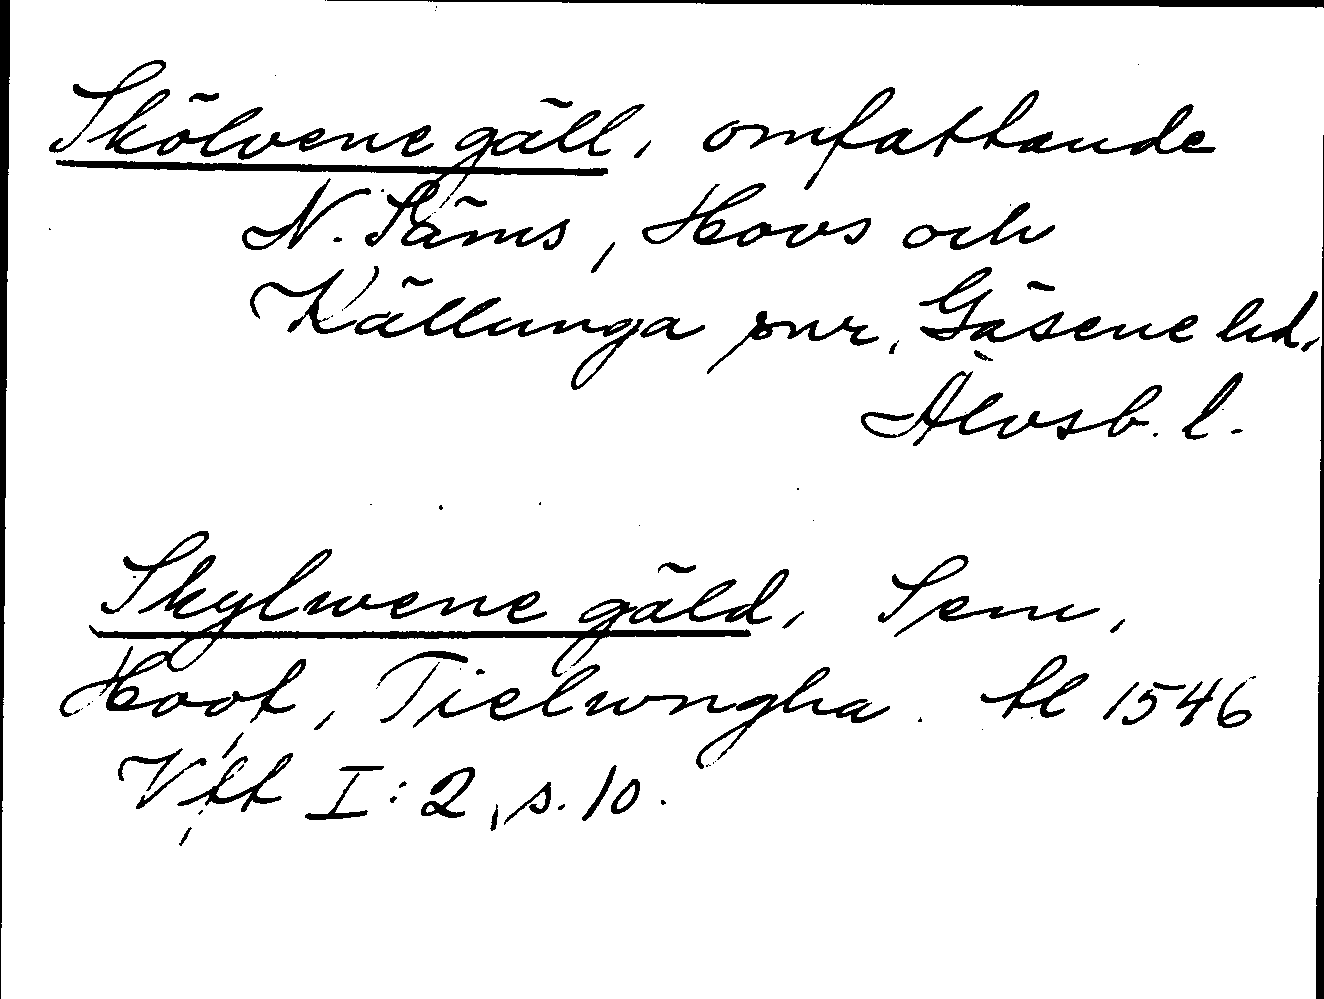 Skölvene gäll, omfattande
N. Säms, Hovs och
Källunga snr, Gäsene hd,
Älvsb. l.
Skylwene gäld, Sem,
Hoof, Tielwngha. tl 1546
Vtt I:2, s. 10.